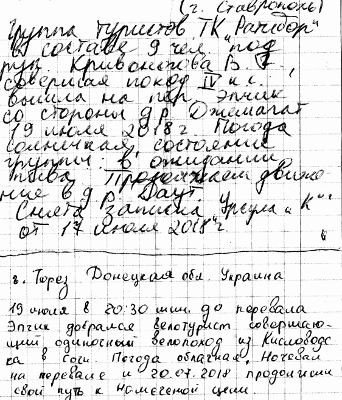 (г. Ставрополь)
Группа туристов ТК „Ратибор"
в составе 9 чел. под
рук. Кривоносова В. Г.,
совершая поход IV к.с.
вышла на пер. Эпчик
со стороны д.р. Джемагат
19 июля 2018 г. Погода
солнечная, состояние
группы: в ожидании
пива. Продолжаем движе-
ние в д.р. Даут.
Снята записка Урсула „К"
от 17 июля 2018 г.
г. Торез Донецкая обл. Украина
19 июля в 20:30 мин. до перевала
Эпчик добрался велотурист совершаю-
щий одиночный велопоход из Кисловодс
ка в Сочи. Погода облачная. Ночевал
на перевале и 20.07.2018 продолжил
свой путь к намеченой цели.